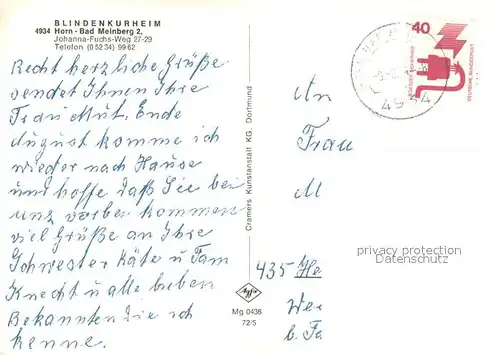 BLINDENKURHEIM
4934 Horn - Bad Meinberg 2,
Johanna-Fuchs-Weg 27-29
Telefon (0 52 34) 99 62
Recht herzliche Grüße
sendet Ihnen Ihre
Frau Mut. Ende
august komme ich
wieder nach Hause
und hoffe daß Sie bei
uns vorbei kommen
viel Grüße an Ihre
Schwester Käte u Fam
Knecht u alle lieben
Bekannten die ich
kenne.
Cramers Kunstanstalt KG. Dortmund
Mg 0436
72/5
40
DEUTSCHE BUNDESPOST
An
Frau
M
435 He
b. Fa
privacy protection
AnsichtskartenCenter